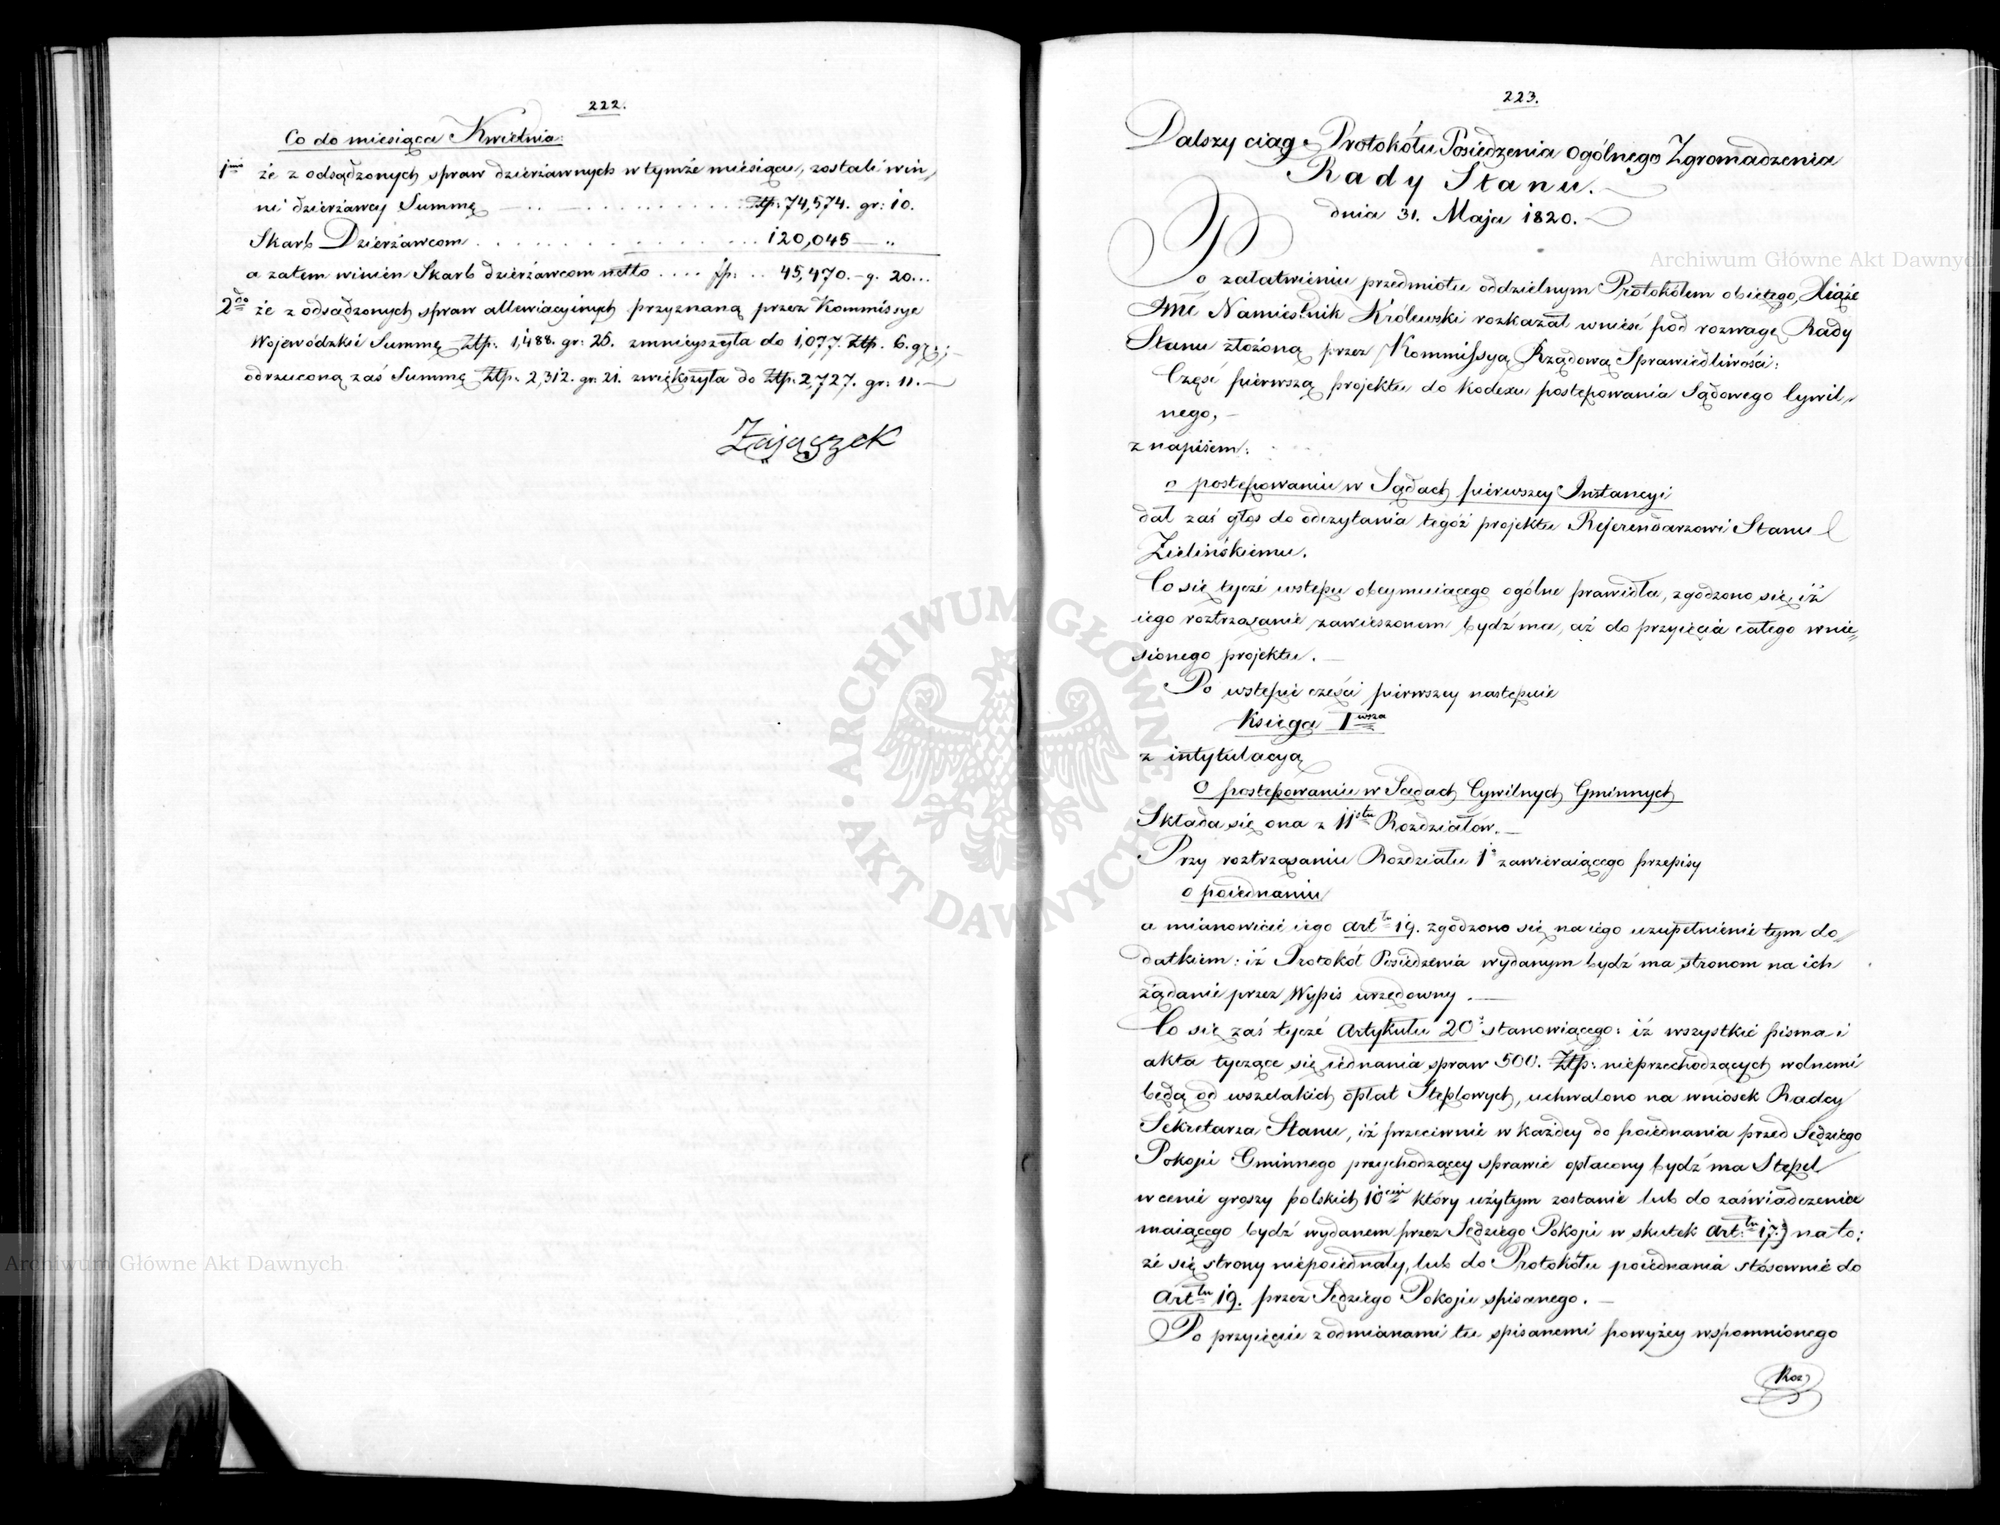 222.
Co do miesiąca Kwietnia:
1mo że z odsądzonych spraw dzierżawnych w tymże miesiącu, zostali win,,
ni dzierżawcy Summę . . . . . . . . Złp: 74,574. gr: 10.
Skarb Dzierżawcom . . . . . . . . . . . . . . . 120,045 — „
a zatem winien Skarb dzierżawcom netto . . . . fp: . . 45,470. – g. 20...
2do że z odsądzonych spraw allewiacyinych przyznaną przez Kommissye
Wojewódzkie Summę Złp: 1,488. gr: 25. zmnieyszyła do 1,077. Złp. 6. gr:;—
odrzuconą zaś Summę Złp. 2,312. gr. 21. zwiększyła do Złp. 2,727. gr: 11.—
Zajączek
223.
Dalszy ciąg Protokółu Posiedzenia ogólnego Zgromadzenia
Rady Stanu.
dnia 31. Maja 1820.
Po załatwieniu przedmiotu oddzielnym Protokółem obiętego, Xiąże
Jmć Namiestnik Królewski rozkazał wnieść pod rozwagę Rady
Stanu złożoną przez Kommissyą Rządową Sprawiedliwości:
Część pierwszą projektu do kodexu postępowania Sądowego Cywil,,
nego, —
z napisem:
o postępowaniu w Sądach pierwszey Instancyi
dał zaś głos do odczytania tegóż projektu Referendarzowi Stanu
Zielińskiemu.
Co się tycze wstępu obeymuiącego ogólne prawidła, zgodzono się, iż
iego roztrząsanie zawieszonem bydź ma, aż do przyięcia całego wnie,,
sionego projektu. —
Po wstępie części pierwszey następuie
Księga Iwsza
z intytulacyą
O postępowaniu w Sądach Cywilnych Gminnych
Składa się ona z 11stu Rozdziałów. —
Przy roztrząsaniu Rozdziału 1o zawieraiącego przepisy
o poiednaniu
a mianowicie iego Arttu 19. zgodzono się na iego uzupełnienie tym do,,
datkiem: iż Protokół Posiedzenia wydanym bydź ma stronom na ich
żądanie przez Wypis urzędowny. —
Co się zaś tycze Artykułu 20o stanowiącego: iż wszystkie pisma i
akta tyczące się iednania spraw 500. Złp: nieprzechodzących wolnemi
będą od wszelakich opłat Stęplowych, uchwalono na wniosek Radcy
Sekretarza Stanu, iż przeciwnie w każdey do poiednania przed Sędziego
Pokoju Gminnego przychodzącey sprawie opłacony bydź ma Stępel
w cenie groszy polskich 10ciu który użytym zostanie lub do zaświadczenia
maiącego bydź wydanem przez Sędziego Pokoju w skutek Art:tu 17.) na to;
że się strony niepoiednały, lub do Protokółu poiednania stósownie do
Arttu 19. przez Sędziego Pokoju spisanego. —
Po przyięciu z odmianami tu spisanemi powyżey wspomnionego
Roz
Archiwum Główne Akt Dawnych
Archiwum Główne Akt Dawnych
ARCHIWUM GŁÓWNE AKT DAWNYCH